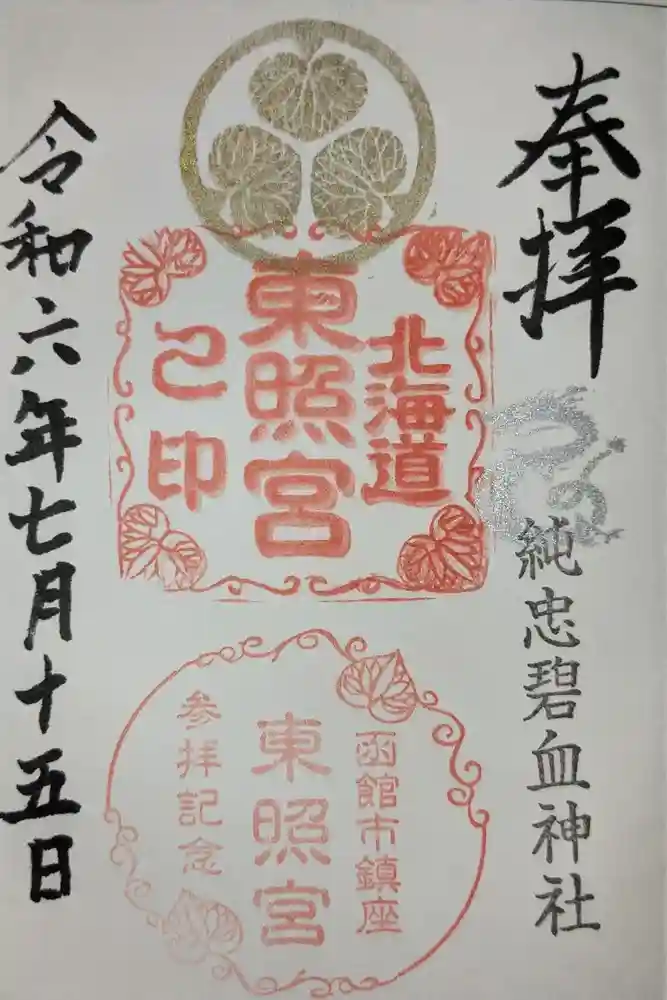 奉拝
純忠碧血神社
北海道
東照宮
之印
函館市鎮座
東照宮
参拝記念
令和六年七月十五日